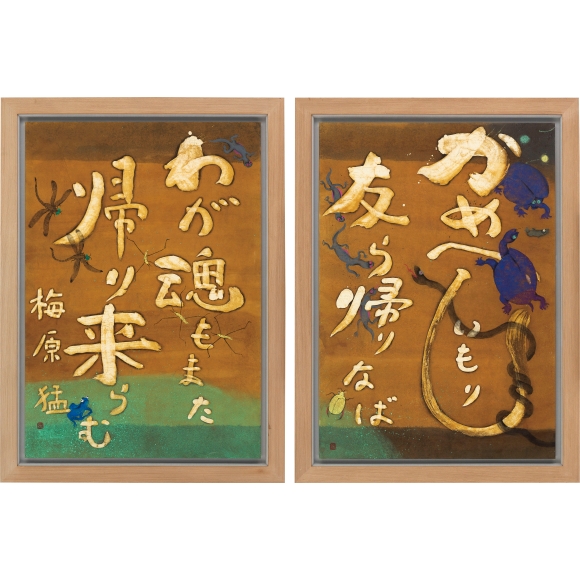 かめへびいもり
友ら帰りなば
わが魂もまた
帰り来らむ
梅原猛